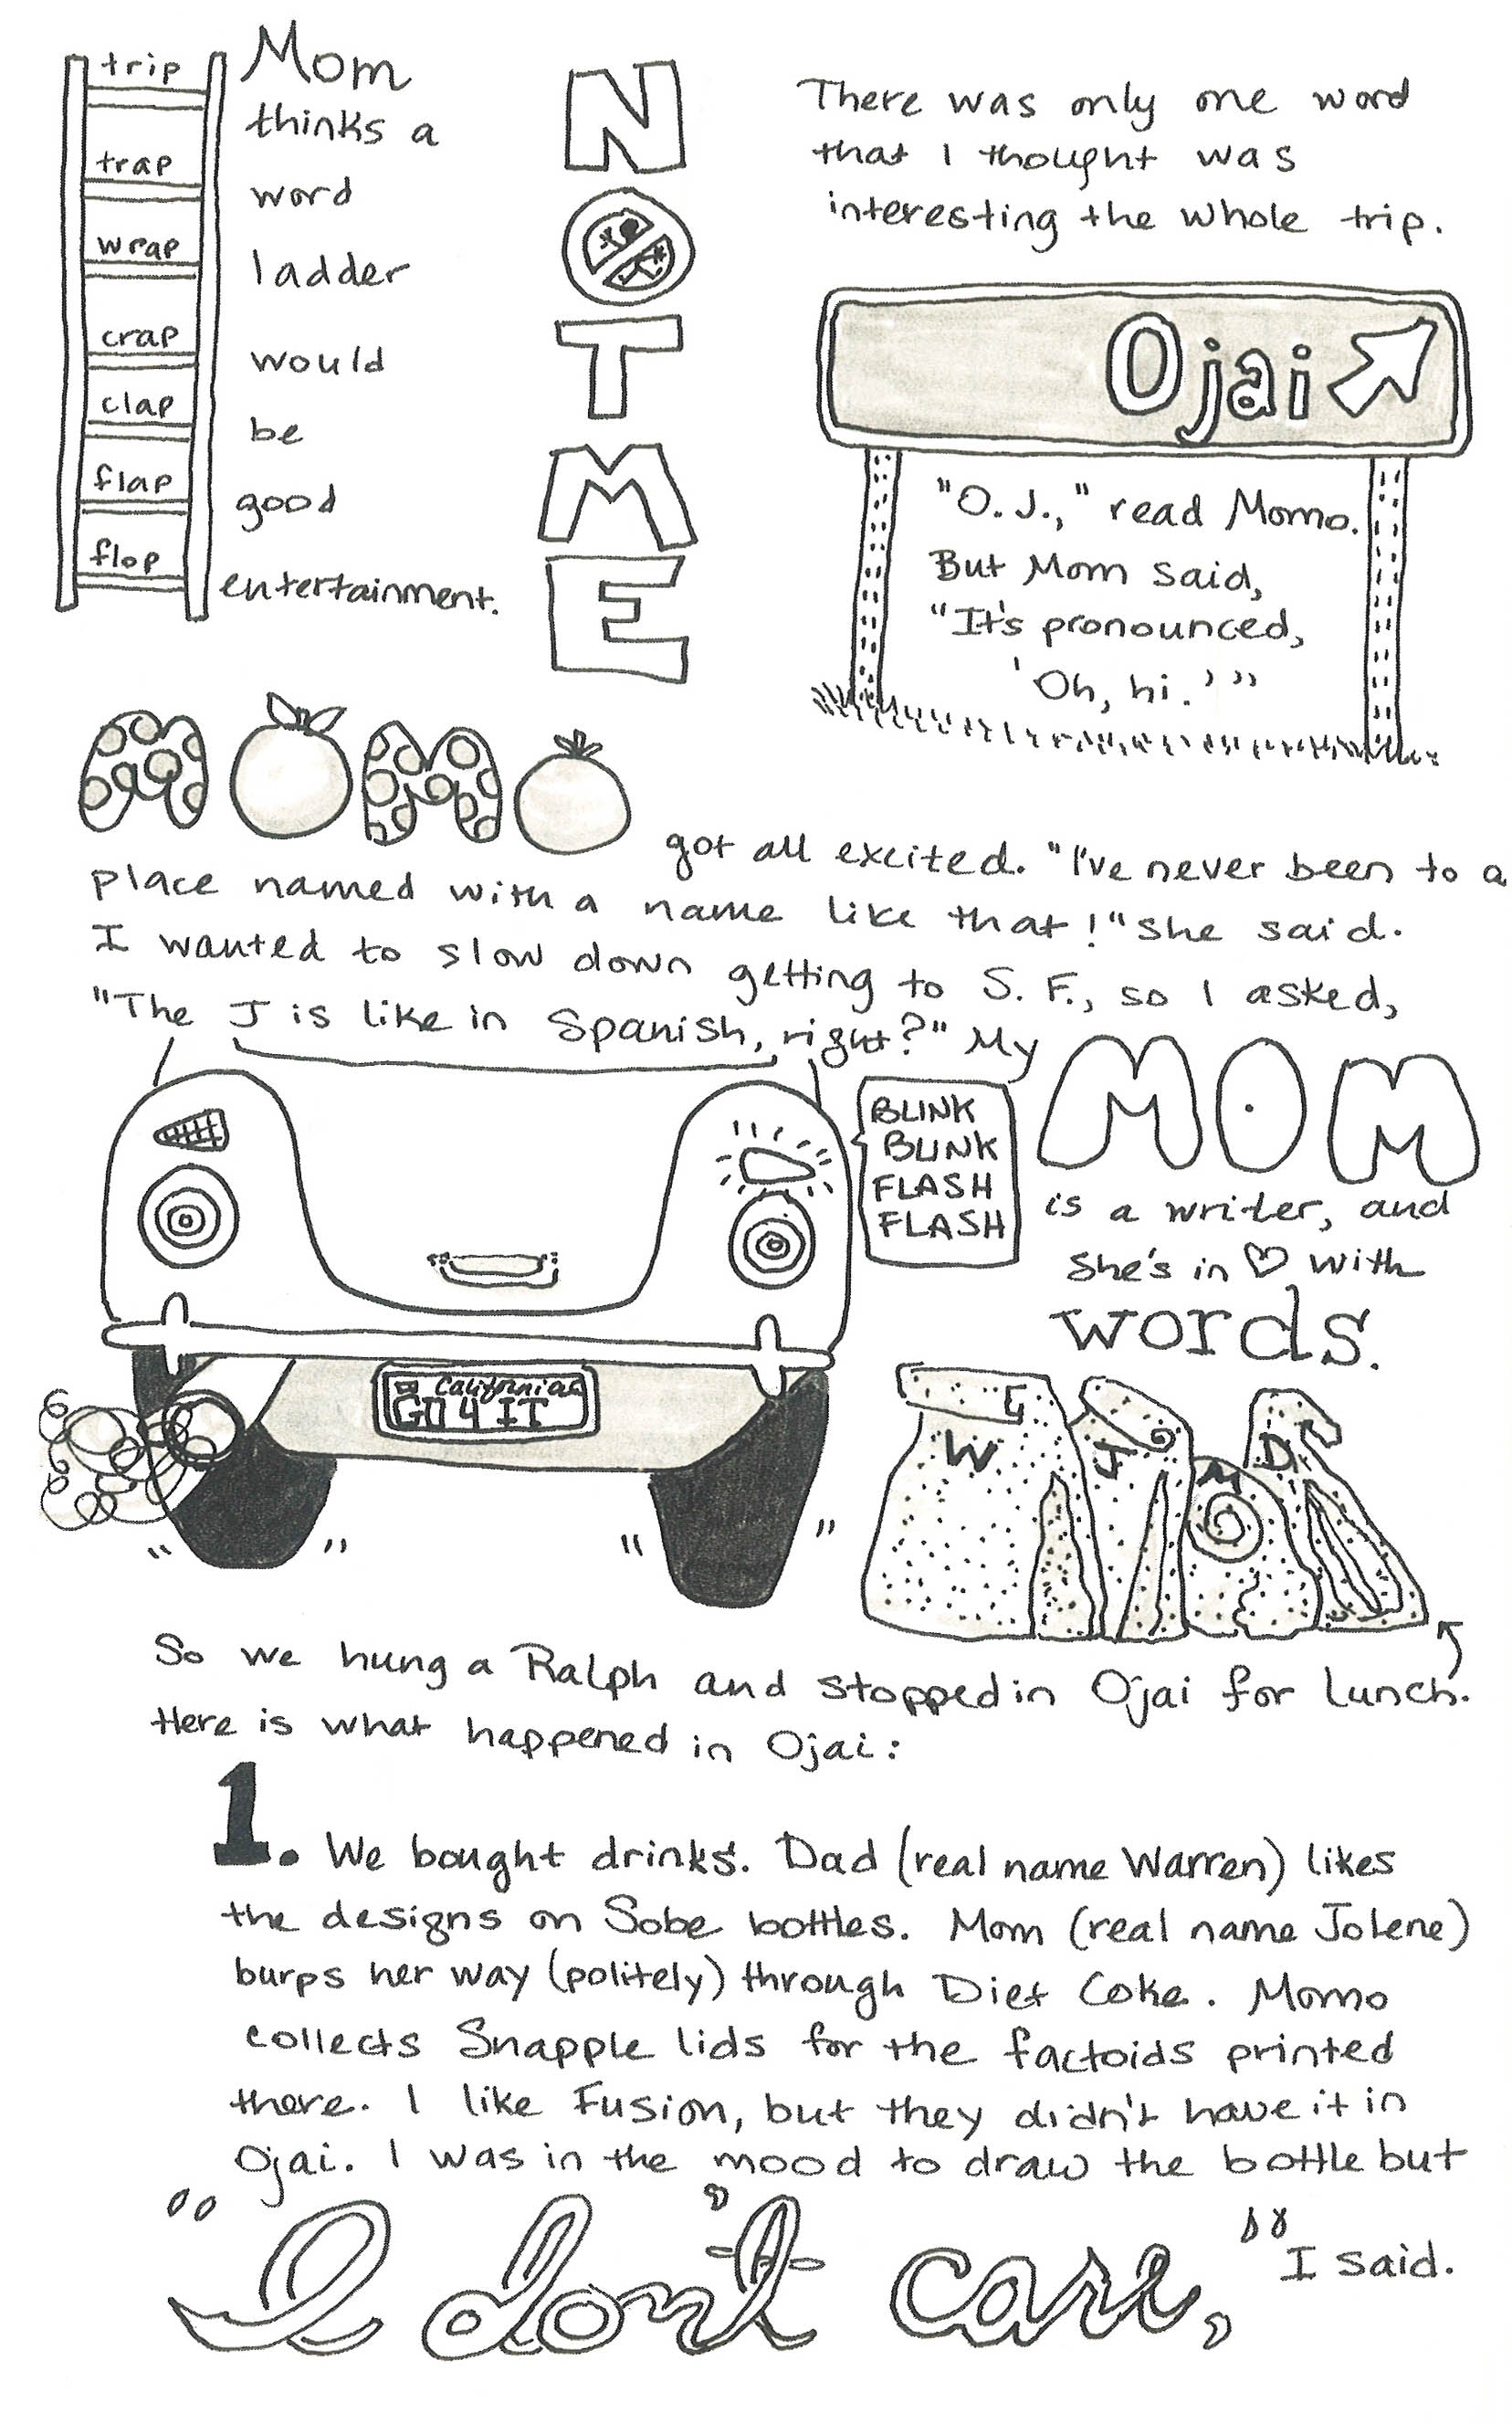 trip
trap
wrap
crap
clap
flap
flop
Mom
thinks a
word
ladder
would
be
good
entertainment.
N
O
T
M
E
There was only one word
that I thought was
interesting the whole trip.
Ojai
"O.J.," read Momo.
But Mom said,
"It's pronounced,
'Oh, hi.'"
MOMO got all excited. "I've never been to a
place named with a name like that!" She said.
I wanted to slow down getting to S.F., so I asked,
"The J is like in Spanish, right?" My
MOM
is a writer, and
she's in ♡ with
words.
BLINK
BLINK
FLASH
FLASH
California
GO 4 IT
W J M D
So we hung a Ralph and stopped in Ojai for lunch.
Here is what happened in Ojai:
1. We bought drinks. Dad (real name Warren) likes
the designs on Sobe bottles. Mom (real name Jolene)
burps her way (politely) through Diet Coke. Momo
collects Snapple lids for the factoids printed
there. I like Fusion, but they didn't have it in
Ojai. I was in the mood to draw the bottle but
"I don't care," I said.